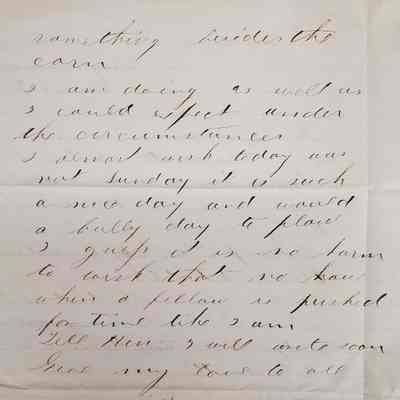 something besides the
corn
I am doing as well as
I could expect under
the circumstances
I almost wish today was
not Sunday it is such
a nice day and would
a bully day to plow
I guess it is no harm
to wish that no how
when a fellow is pushed
for time like I am
Tell Him I will write soon
Give my love to all